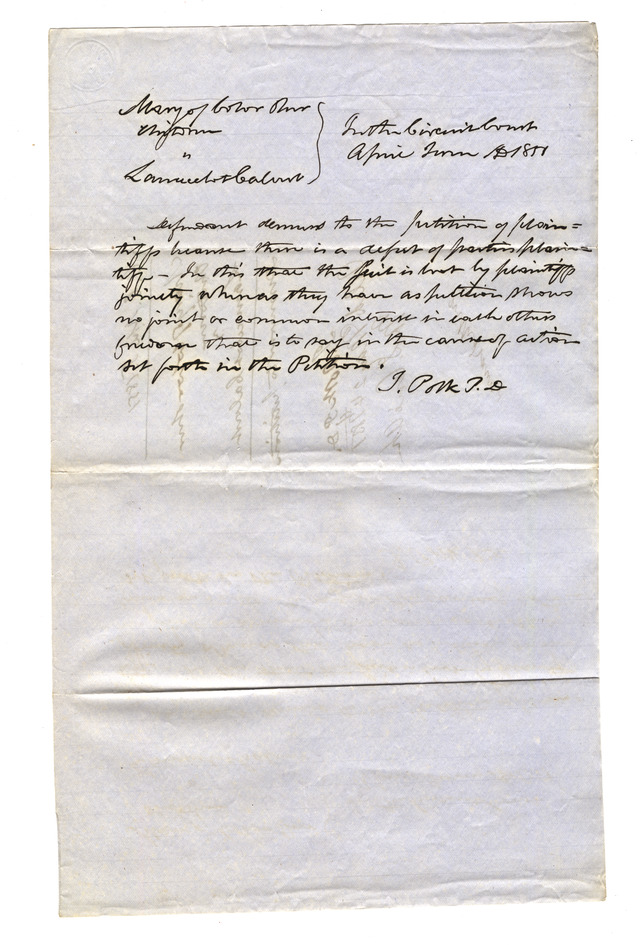 Mary of Color &
vs
Lancelot Calvert
In the Circuit Court
April Term AD 1851
Defendant demurs to the petition of plain=
tiffs because there is a defect of parties plain=
tiffs – In this that the suit is brot by plaintiffs
jointly whereas they have as petition shows
no joint or common interest in each others
freedom that is to say in the cause of action
set forth in the Petition.
T. Polk P. D